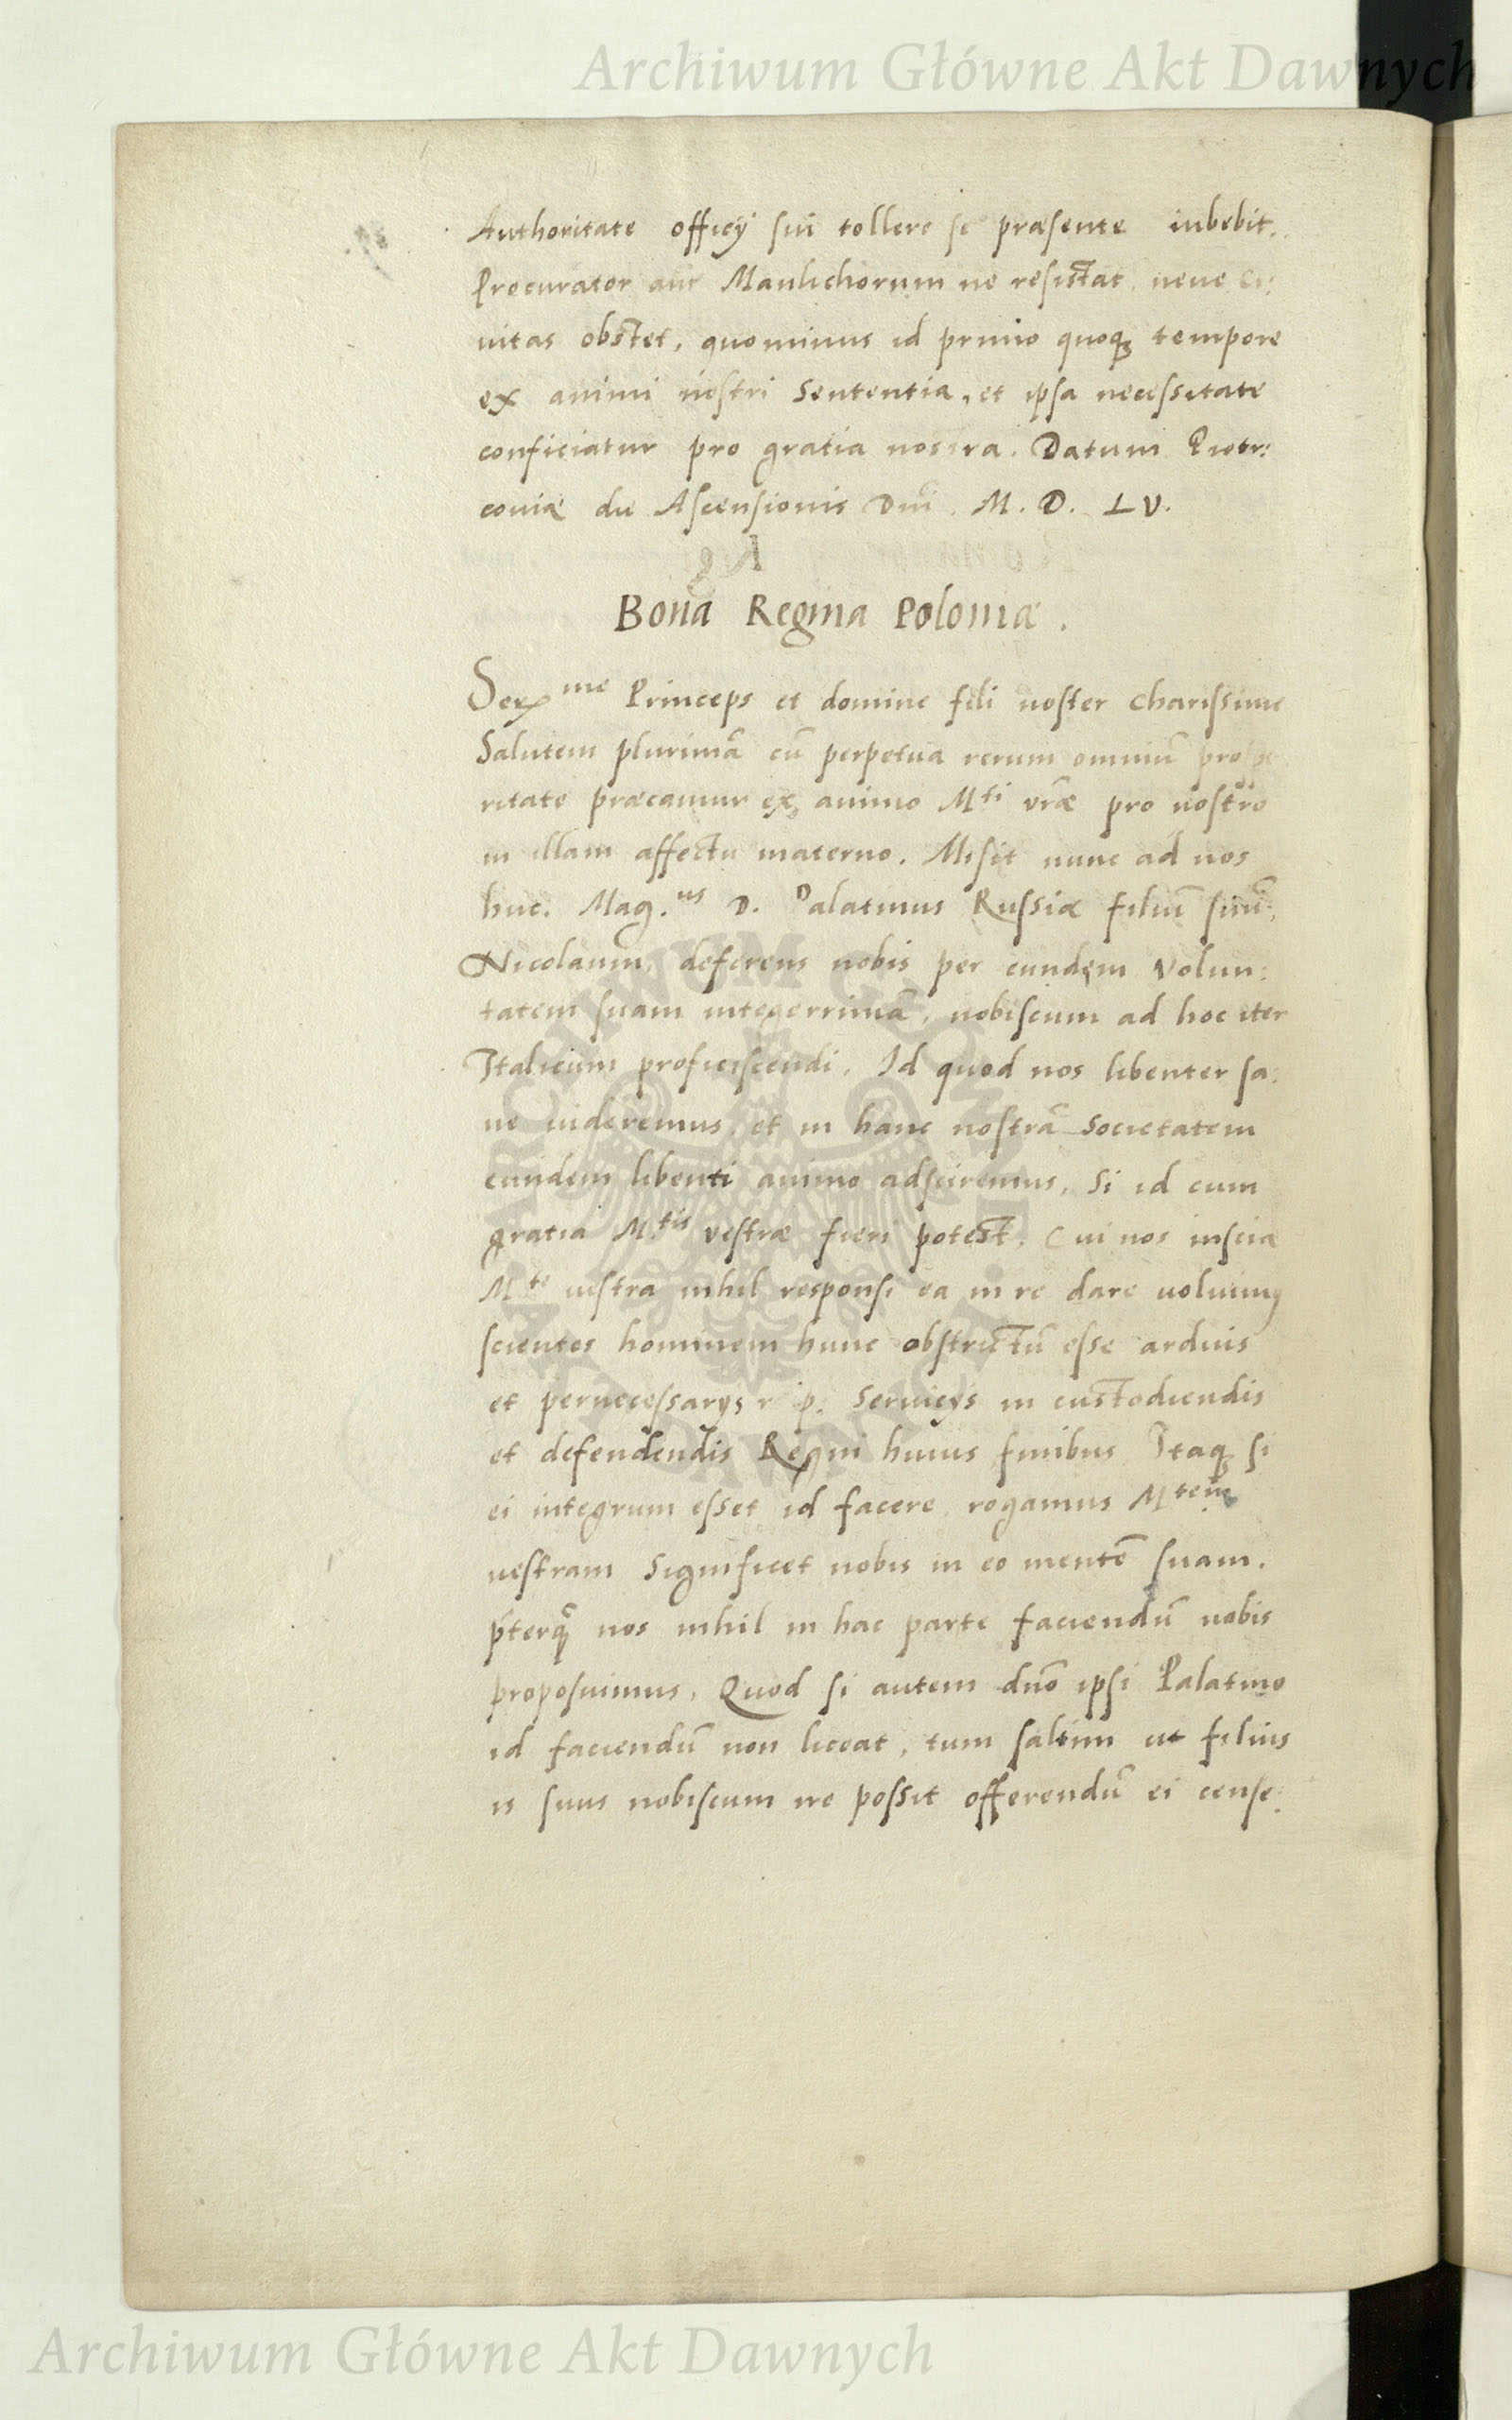 Archiwum Główne Akt Dawnych
Authoritate officÿ sui tollere se præsente iubebit.
Procurator aut Manlichorum ne resistat, neue ci:
uitas obstet, quominus id primo quoq3 tempore
ex animi nostri sententia, et ipsa necessitate
conficiatur pro gratia nostra. Datum Piotr:
coniæ die Ascensionis Dnī. M. D. LV.
Bona Regina Poloniæ.
Serme Princeps et domine fili noster charissime
Salutem plurimā cū perpetua rerum omniū prospe
ritate præcamur ex animo Mti vrǣ pro nostro
in illam affectu materno. Misit nunc ad nos
huc. Mag.us D. Palatinus Russiæ filiū suū,
Nicolaum, deferens nobis per eundem volun:
tatem suam integerrimā, nobiscum ad hoc iter
Italicum proficiscendi. Id quod nos libenter sa:
ne uideremus, et in hanc nostrā Societatem
eundem libenti animo adsciremus, Si id cum
gratia M.tis vestræ fieri potest. Cui nos inscia
Mte uestra nihil responsi ea in re dare uoluimus
scientes hominem hunc obstrictū esse arduis
et pernecessarÿs r p. Seruicÿs in custodiendis
et defendendis Regni huius finibus Itaq3 si
ei integrum esset id facere rogamus Mtem
uestram Significet nobis in eo mentē suam.
p̄terq̄ nos nihil in hac parte faciendū nobis
proposuimus, Quod si autem dnō ipsi Palatino
id faciendū non liceat, tum saltim ut filius
is suus nobiscum ire possit offerendū ei cense:
Archiwum Główne Akt Dawnych